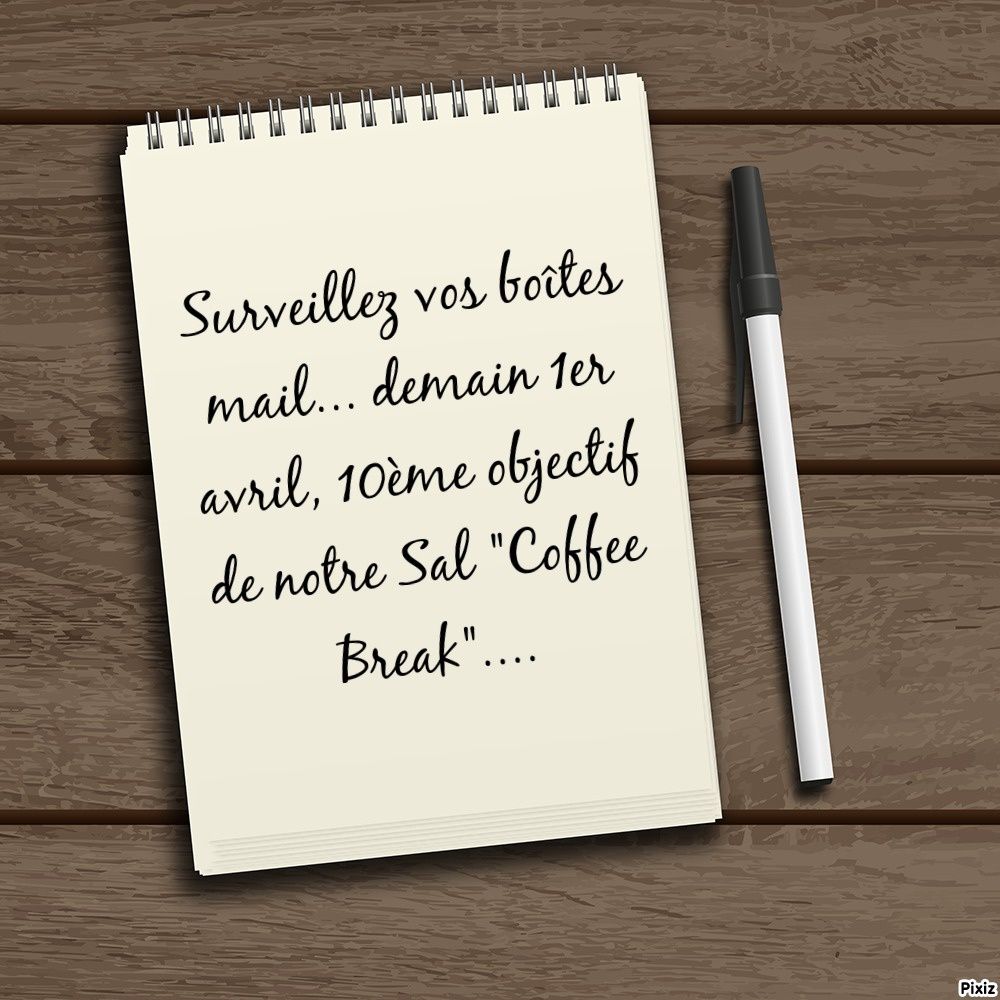 Surveillez vos boîtes
mail... demain 1er
avril, 10ème objectif
de notre Sal "Coffee
Break"....
Pixiz